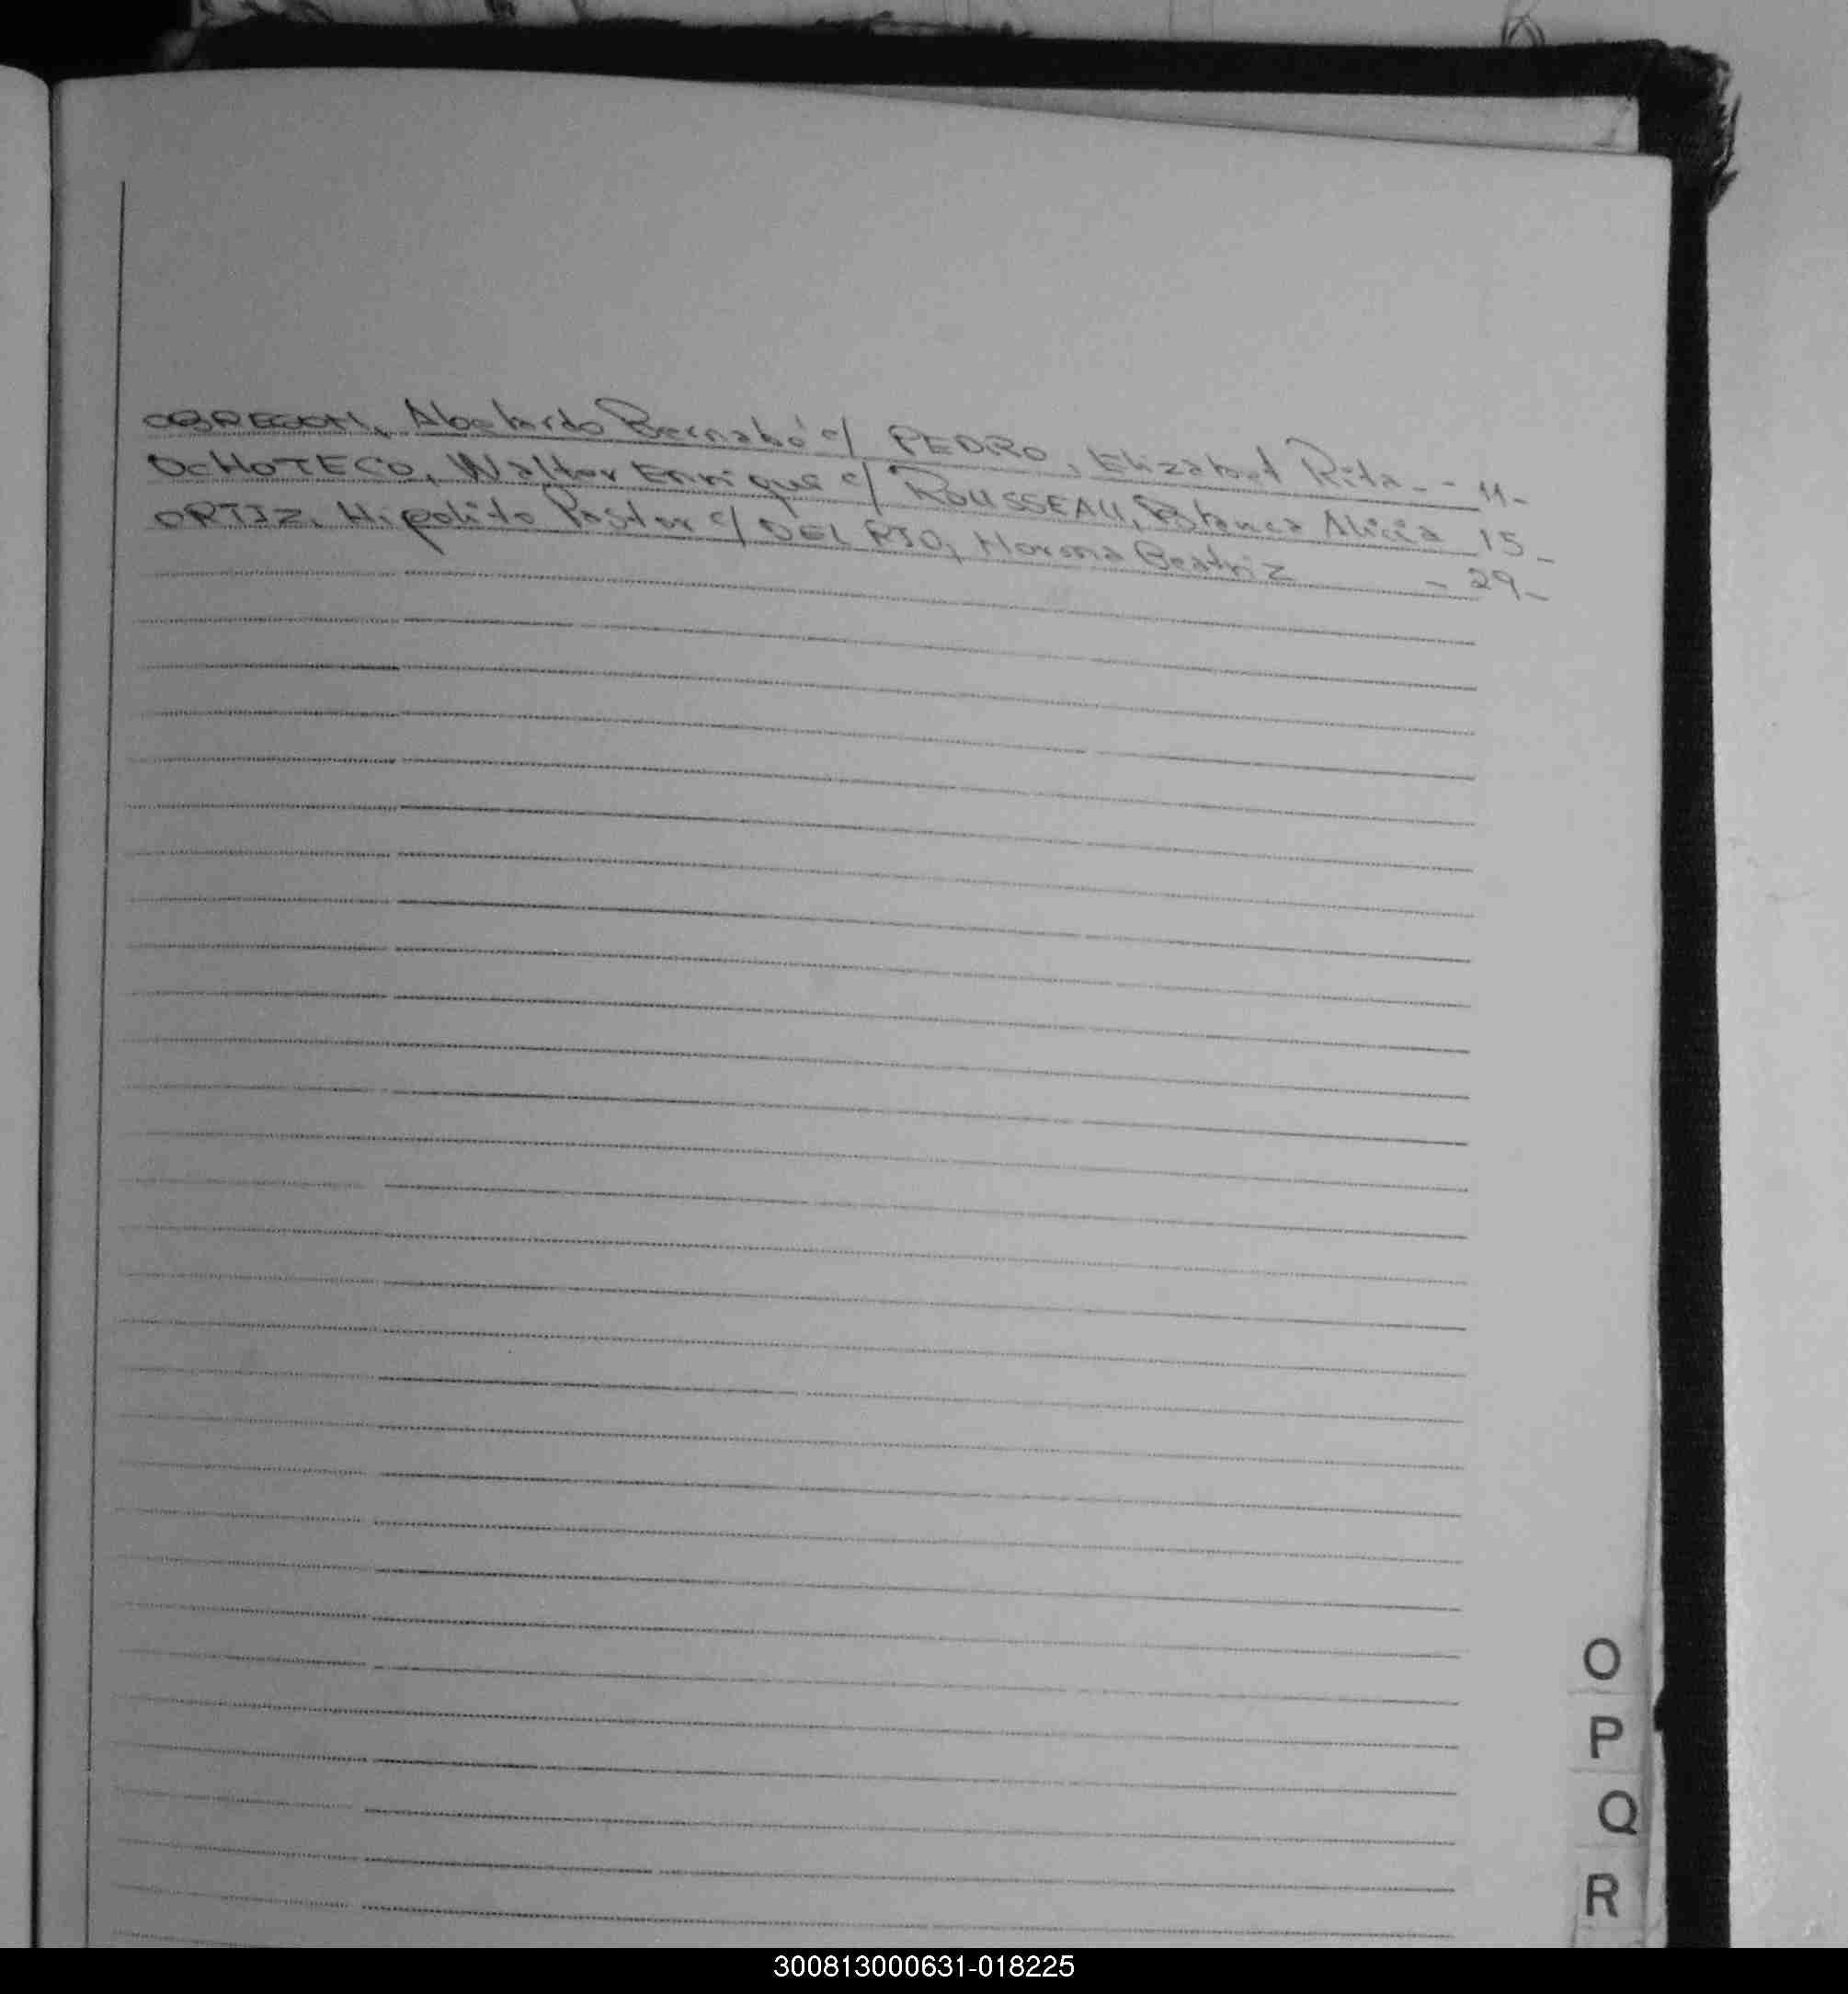 OBREGON, Abelardo Bernabé c/ PEDRO, Elizabet Rita - - 11 -
OCHOTECO, Walter Enrique c/ ROUSSEAU, Blanca Alicia 15 -
ORTIZ, Hipolito Pastor c/ DEL RIO, Norma Beatriz - 29 -
O
P
Q
R
300813000631-018225